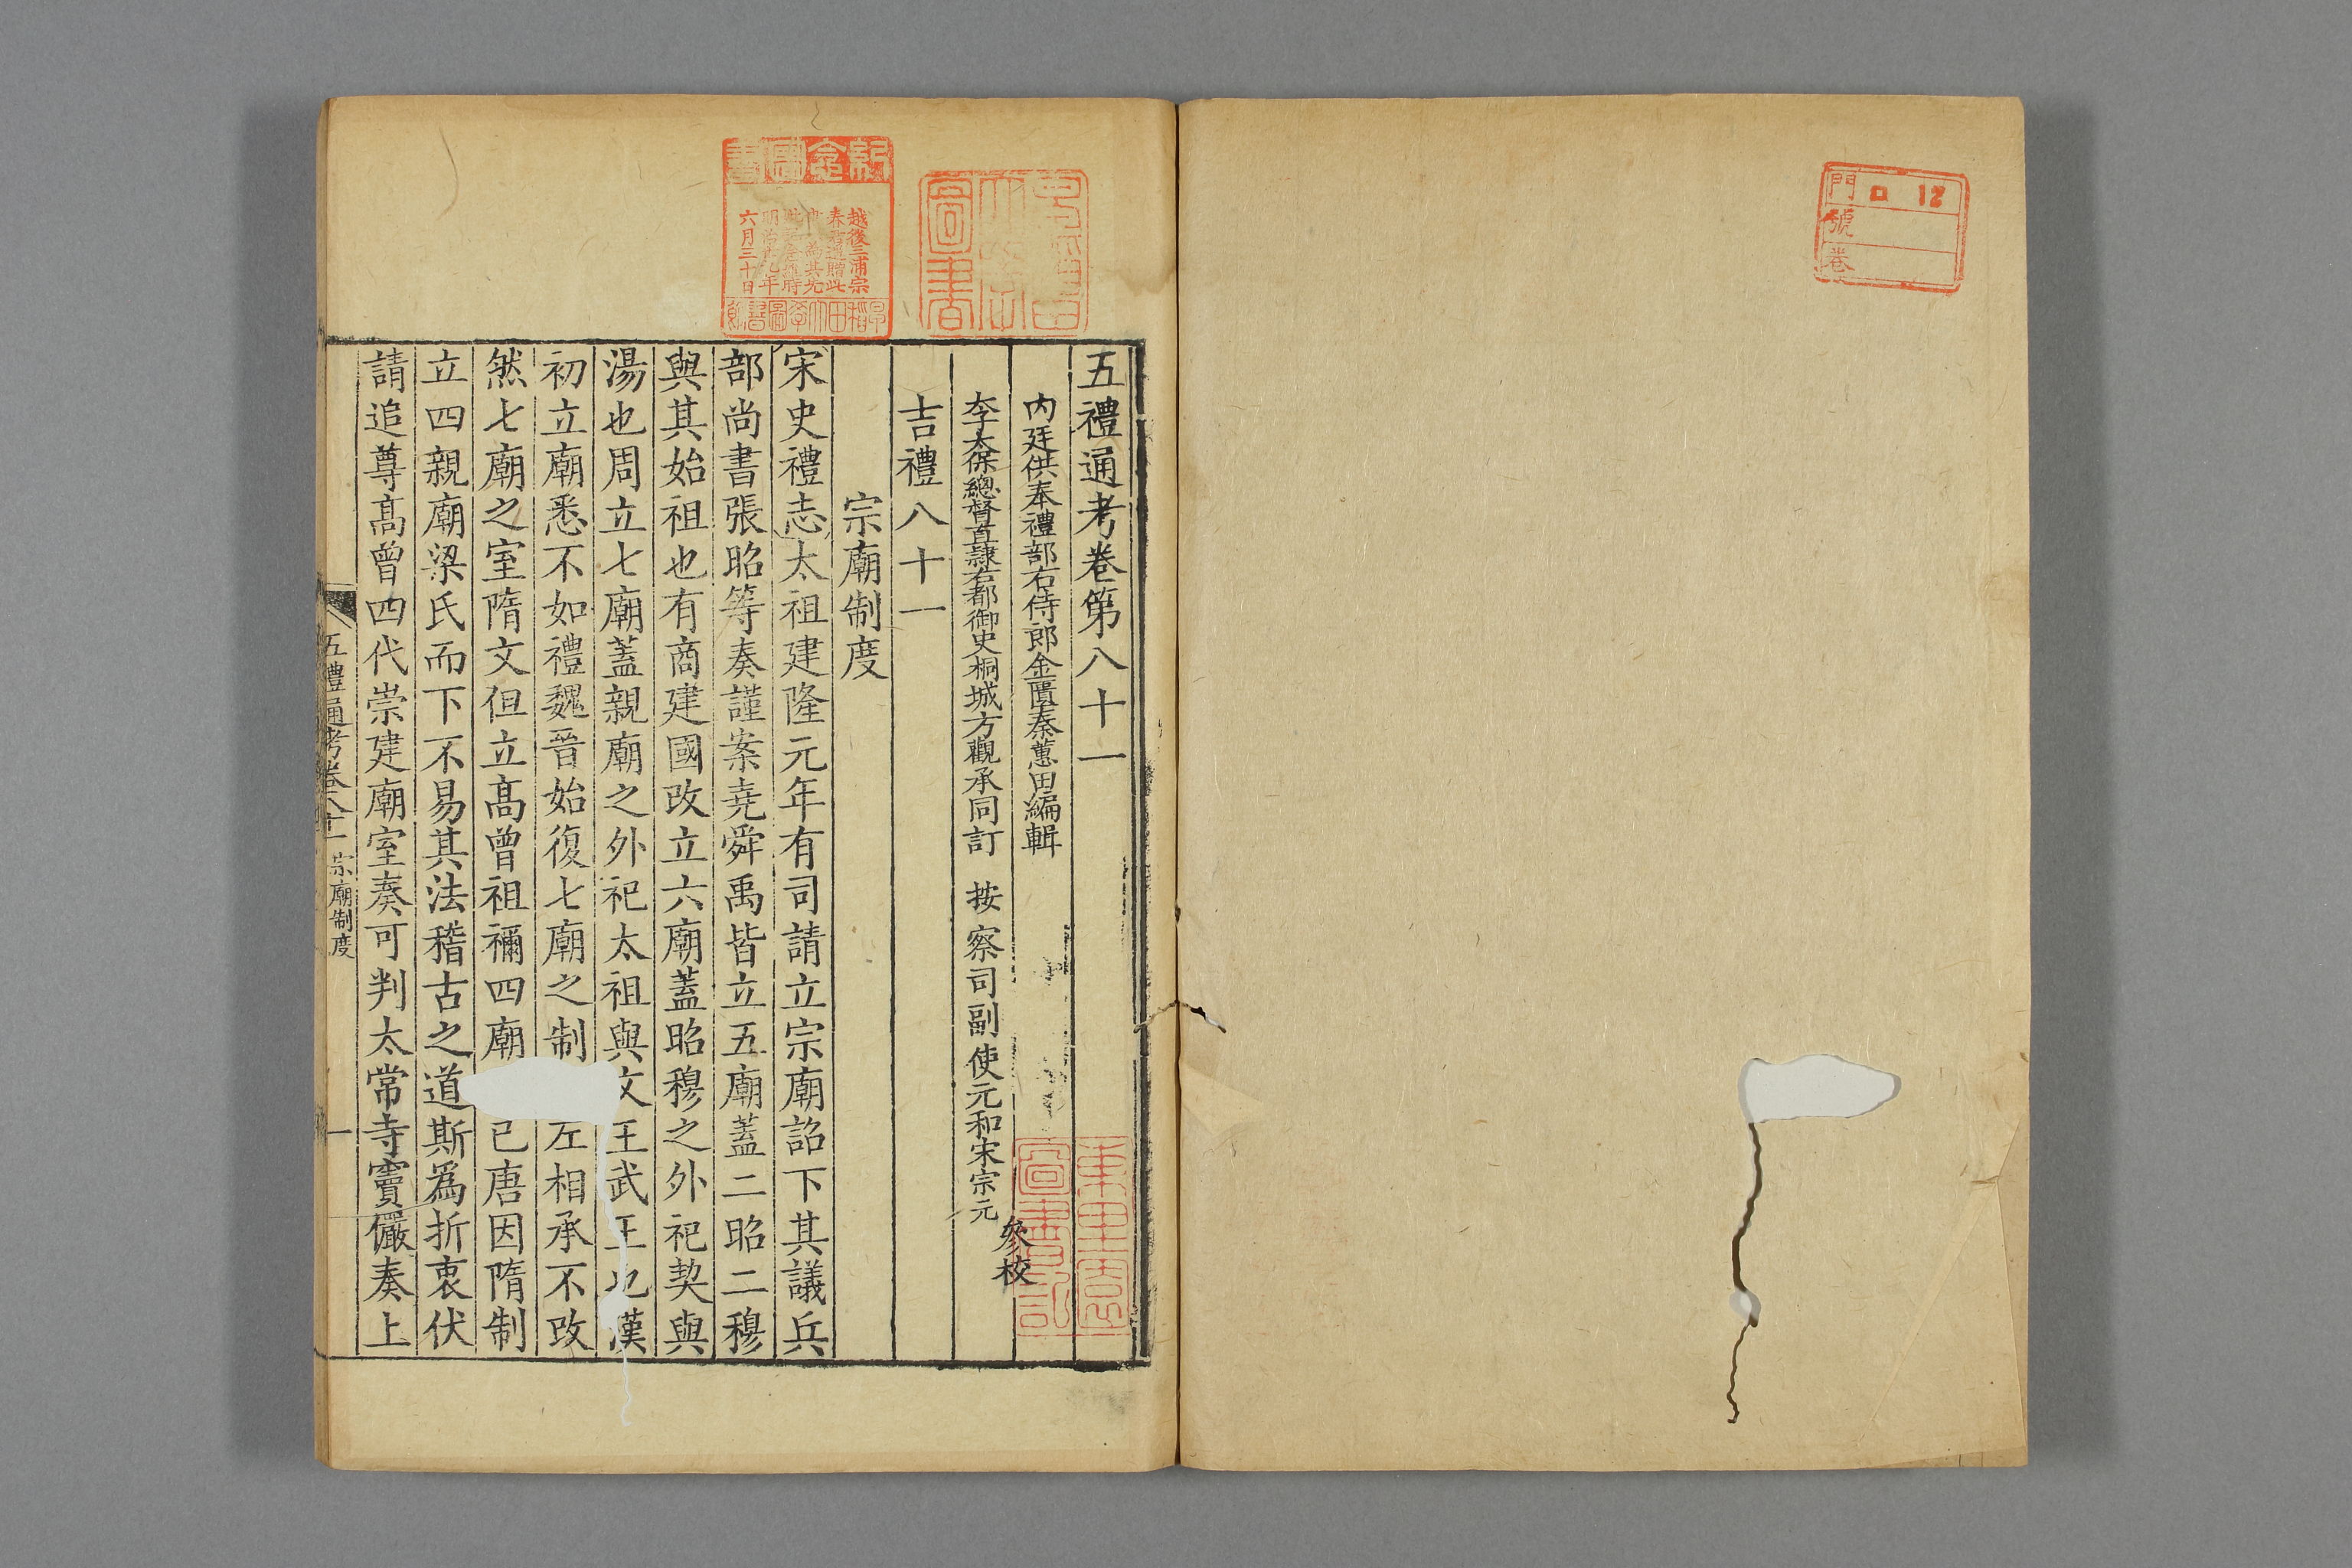 門 ロ 12
號
卷
五禮通考卷第八十一
內廷供奉禮部右侍郎金匱秦蕙田編輯
太保總督直隸右都御史桐城方觀承同訂 按察司副使元和宋宗元
參校
吉禮八十一
宗廟制度
宋史禮志太祖建隆元年有司請立宗廟詔下其議兵
部尚書張昭等奏謹案堯舜禹皆立五廟蓋二昭二穆
與其始祖也有商建國改立六廟蓋昭穆之外祀契與
湯也周立七廟蓋親廟之外祀太祖與文王武王也漢
初立廟悉不如禮魏晉始復七廟之制 左相承不改
然七廟之室隋文但立高曾祖禰四廟 已唐因隋制
立四親廟梁氏而下不易其法稽古之道斯爲折衷伏
請追尊高曾四代崇建廟室奏可判太常寺竇儼奏上
五禮通考卷八十一 宗廟制度
一
紀念圖書
越後三浦宗
春 贈此
六月三十日
早稻田大學圖書館
圖書
圖書記